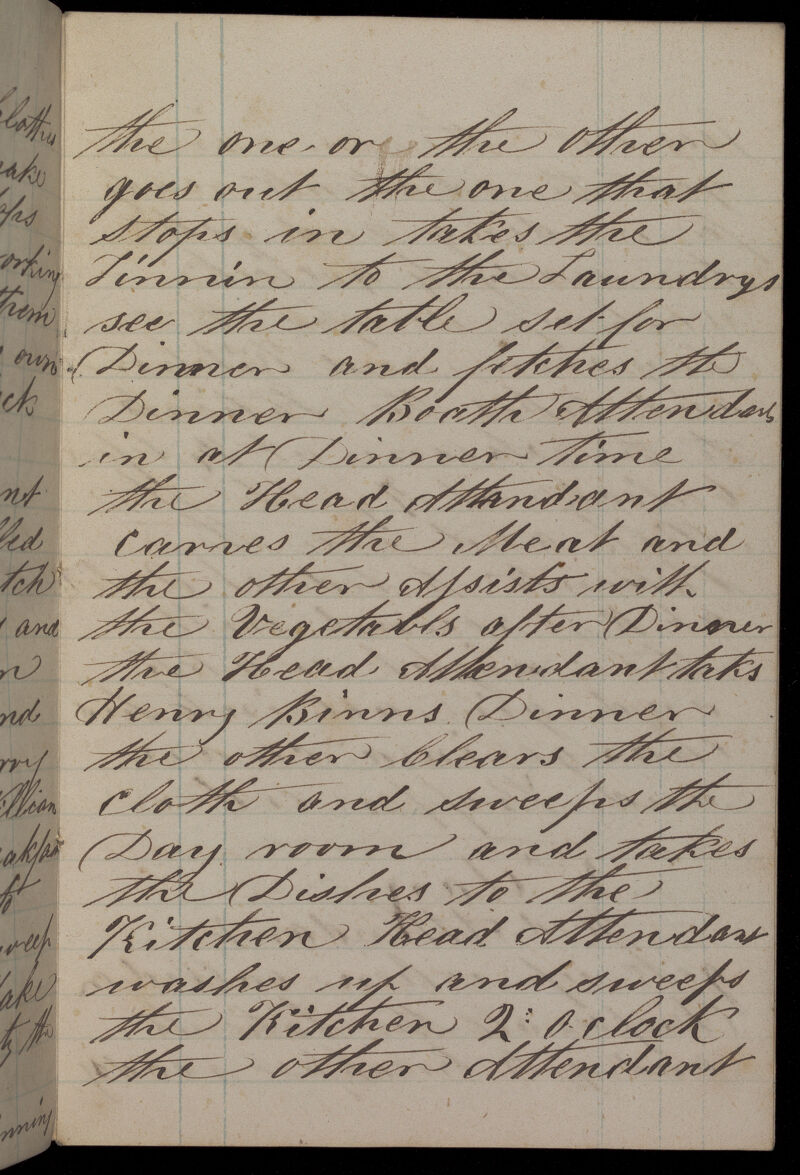 the one or the other
goes out the one that
stops in takes the
Linnin to the Laundrys
see the table set for
Dinner and fetches the
Dinner Boath Attendants
in at Dinner time
the Head Attendant
carves the Meat and
the other Assists with
the Vegetabls after Dinner
the Head Attendant taks
Henry Binns Dinner
the other Clears the
cloth and sweeps the
Day room and takes
the Dishes to the
Kitchen Head Attendant
washes up and sweeps
the Kitchen 2: O clock
the other Attendant